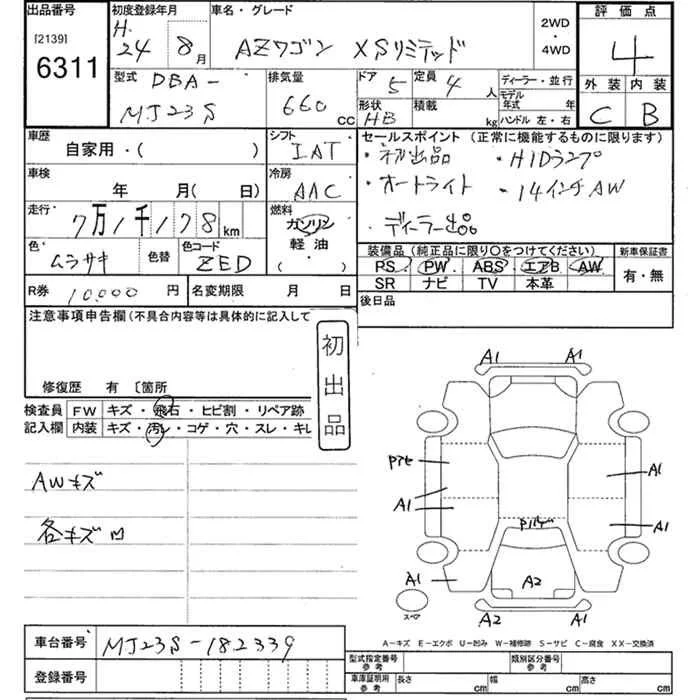 出品番号
[2139]
6311
初度登録年月
H.
24 8月
車名・グレード
AZワゴン XSリミテッド
2WD
・
4WD
評価点
4
外装 内装
C B
型式 DBA-
MJ23S
排気量
660 CC
ドア 5 定員 4 人
形状 HB 積載 kg
ディーラー・並行
モデル
年式 年
ハンドル 左・右
車歴
自家用・( )
シフト
IAT
セールスポイント (正常に機能するものに限ります)
・初出品 ・HIDランプ
・オートライト ・14インチAW
・ディーラー出品
車検
年 月( 日)
冷房
AAC
走行
7万1千178 km
燃料
ガソリン
軽油
( ・ )
色
ムラサキ
色替
色コード
ZED
装備品(純正品に限り○をつけてください)
PS PW ABS エアB AW
SR ナビ TV 本革
新車保証書
有・無
R券 10,000 円
名変期限 月 日
後日品
注意事項申告欄(不具合内容等は具体的に記入して
初出品
修復歴 有 〔箇所
検査員
記入欄
FW キズ・飛石・ヒビ割・リペア跡
内装 キズ・汚レ・コゲ・穴・スレ・キレ
AWキズ
各キズ凹
A1 A1
A1
A1
A1
A1
A1
A2
A2 A1
スペア
A-キズ E-エクボ U-凹み W-補修跡 S-サビ C-腐食 XX-交換済
車台番号 MJ23S-182339
登録番号
型式指定番号
参考
類別区分番号
参考
車庫証明用
参考
長さ cm 幅 cm 高さ cm